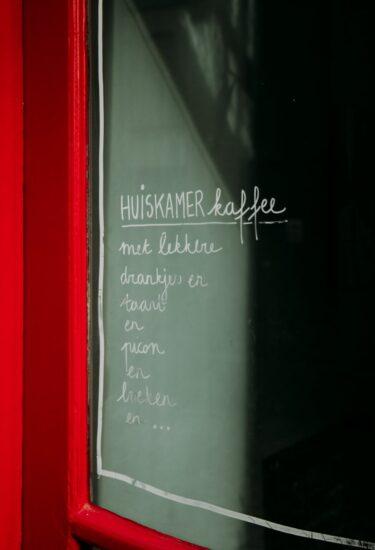 HUISKAMER kaffee
met lekkere
drankjes en
taart
en
picon
en
boeken
en ...